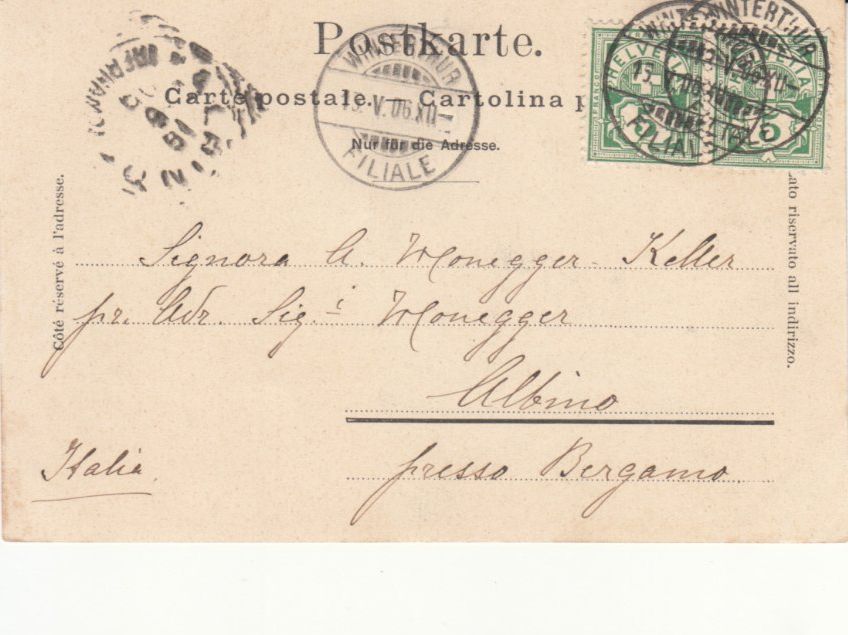 Postkarte.
Carte postale. Cartolina p
Nur für die Adresse.
WINTERTHUR
13.V.06.XII
FILIALE
WINTERTHUR
FILIALE
WINTERTHUR
FILIALE
HELVETIA
5
Côté réservé à l'adresse.
ato riservato all indirizzo.
Signora A. Honegger-Keller
pr. Adr. Sig.i Honegger
Albino
presso Bergamo.
Italia.